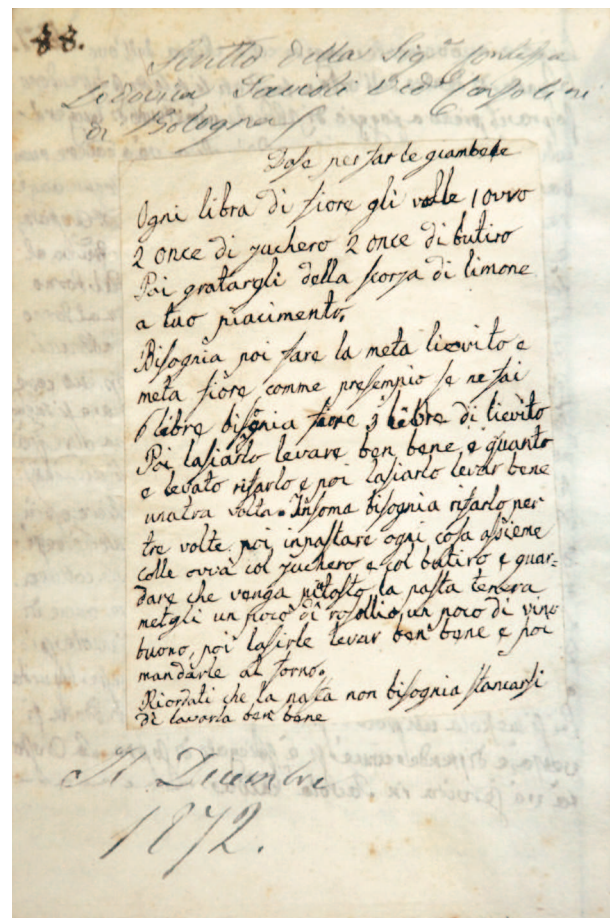 88.
Scritto della Sig.ª Contessa
Lodovica Savioli
di Bologna
Dose per far le giambele
Ogni libra di fiore gli volle 1 ovvo
2 once di zuchero 2 once di butiro
Poi gratargli della scorza di limone
a tuo piacimento,
Bisognia poi fare la meta lievito e
meta fiore comme presempio se ne fai
6 libre bisognia fiore 3 libre di lievito
Poi lasiarlo levare ben bene, e quanto
e levato rifarlo e poi lasiarlo levar bene
unatra volta. Insoma bisognia rifarlo per
tre volte. poi inpastare ogni cosa assieme
colle ovva col zuchero e col butiro e guar=
dare che venga pitosto la pasta tenera
metgli un poco di rosollio, un poco di vino
buono, poi lasirle levar ben bene e poi
mandarle al forno.
Ricordati che la pasta non bisognia stancarsi
di lavarla ben bene
Dicembre
1872.